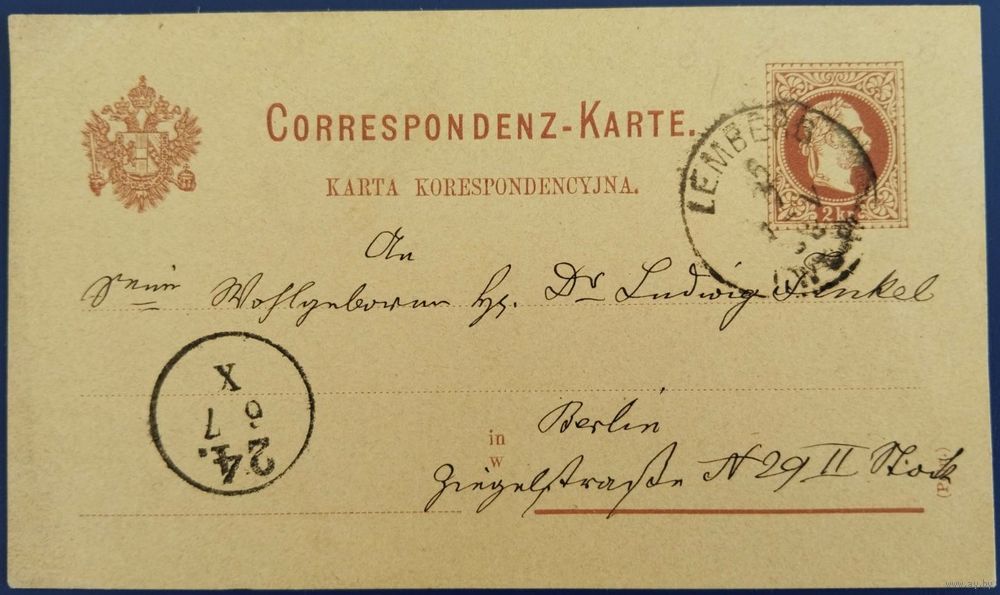 CORRESPONDENZ-KARTE.
KARTA KORESPONDENCYJNA.
2 kr
LEMBERG
An
Seine Wohlgeboren Hr. Dr Ludwig
Berlin
in
w
Ziegelstraße N 29 II Stock
24.
6 7
X
www.ay.by